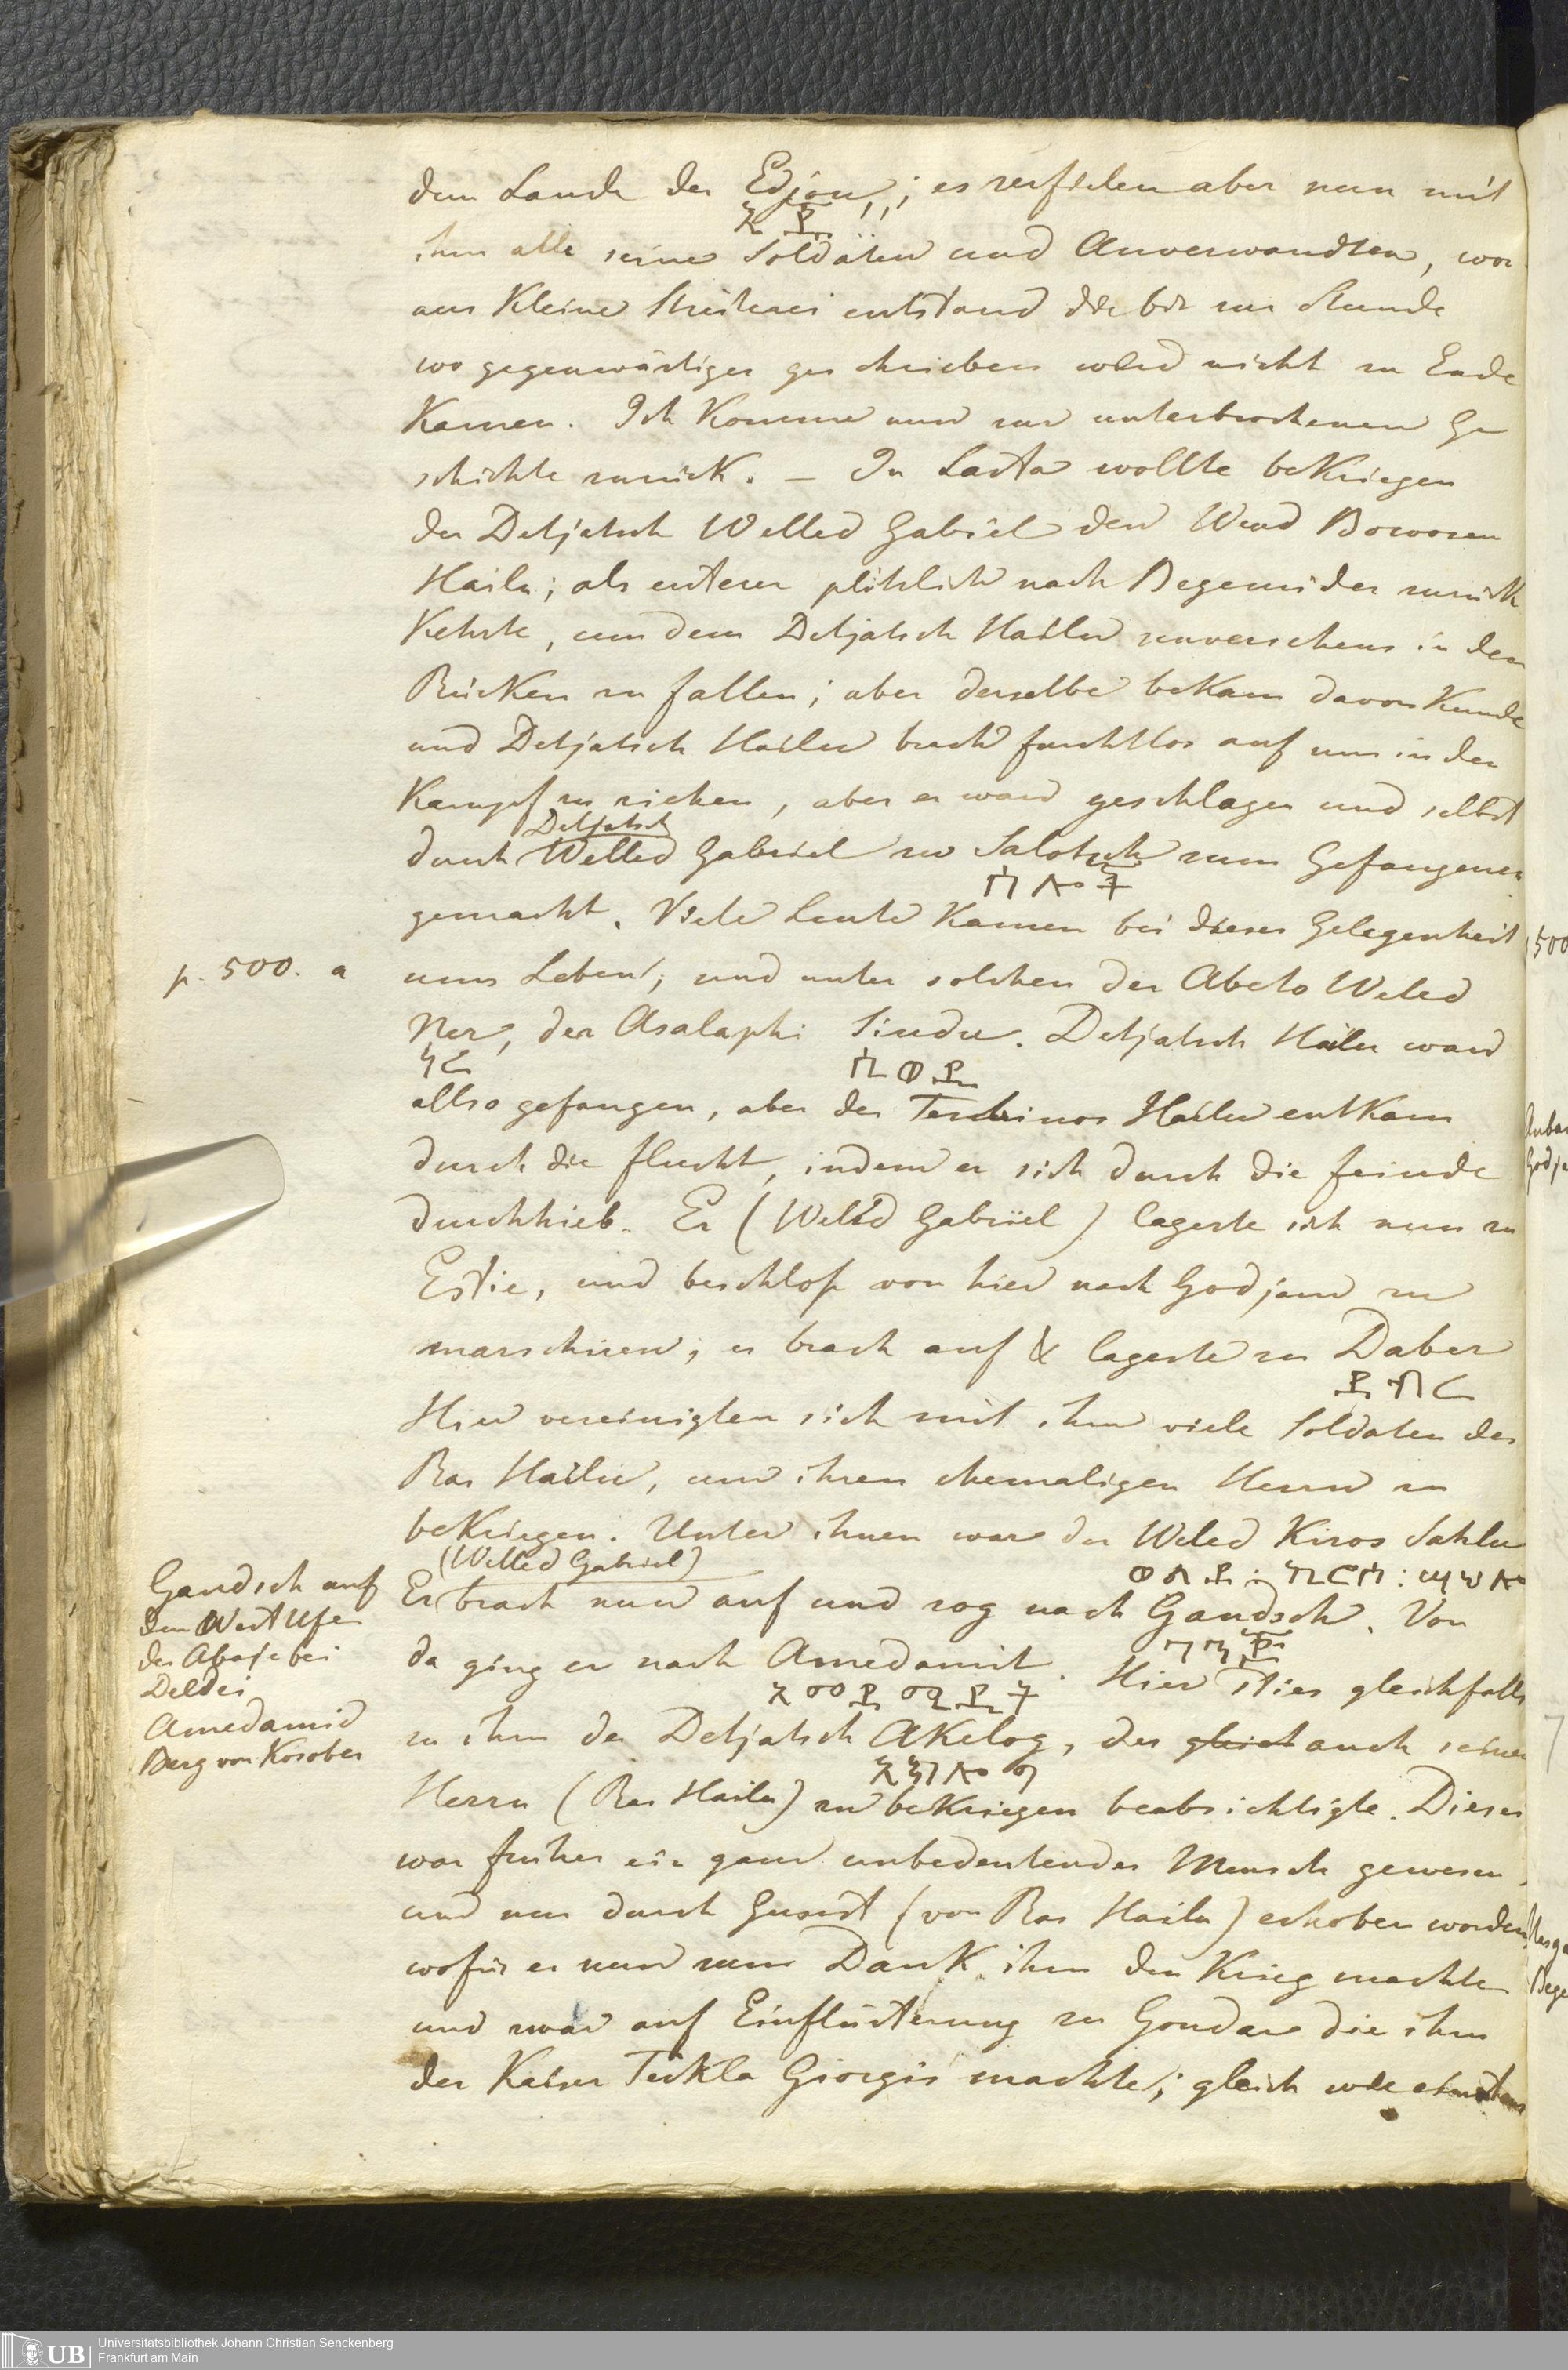 dem Lande der Edjou; es zerfielen aber nun mit
እ ጁ
ihm alle seine Soldaten und Anverwandten, wor
aus Kleine Streiterei entstand die bis zur Stunde
wo gegenwärtiges geschrieben wird nicht zu Ende
Kamen. Ich Komme nun zur unterbrochenen Ge
schichte zurück. – In Lasta wollte beKriegen
der Detjatsch Welled Gabriel den Wend Bowosen
Hailu; als ersterer plötzlich nach Begemider zurück
Kehrte, um dem Detjatsch Hailu unversehens in den
Rücken zu fallen; aber derselbe beKam davon Kunde
und Detjatsch Hailu brach furchtlos auf um in den
Kampf zu ziehen, aber er ward geschlagen und selbst
Detjatsch
durch Welled Gabriel zu Salotsch zum Gefangenen
ሳ ሎ ች
gemacht. Viele Leute Kamen bei dieser Gelegenheit
p. 500. a
ums Leben; und unter solchen der Abeto Weled
Ner, der Asalaphi Sindu. Detjatsch Hailu ward
ኔር
allso gefangen, aber der Hailu entKam
durch die Flucht, indem er sich durch die Feinde
durchhieb. Er (Weled Gabriel) lagerte sich nun zu
Estie, und beschloß von hier nach Godjam zu
marschiren; er brach auf & lagerte zu Daber
ደ ብ ር
Hier vereinigten sich mit ihm viele Soldaten des
Ras Hailu, um ihren ehemaligen Herrn zu
beKriegen. Unter ihnen war der Weled Kiros Sahlu
(Welled Gabriel)
ወልደ : ኪሮስ : ሣህሉ
Er brach nun auf und zog nach Gandsch. Von
ጋንጅ
da ging er nach Amedamit. Hier sties gleichfalls
አመዳሚት
zu ihm der Detjatsch AKelog, der gleich auch seinen
አክሎግ
Herrn (Ras Hailu) zu beKriegen beabsichtigte. Dieser
war früher ein ganz unbedeutender Mensch gewesen,
und nur durch Gunst (von Ras Hailu) erhoben worden,
wofür er nun zum DanK ihm den Krieg machte
und zwar auf Einflüsterung zu Gondar die ihm
der Kaiser Teckla Giorgis machte; gleich wie
Gandsch auf
dem West Ufer
des Abaje bei
Deldei
Amedamid
Berg von Kosober
Universitätsbibliothek Johann Christian Senckenberg
Frankfurt am Main
UB